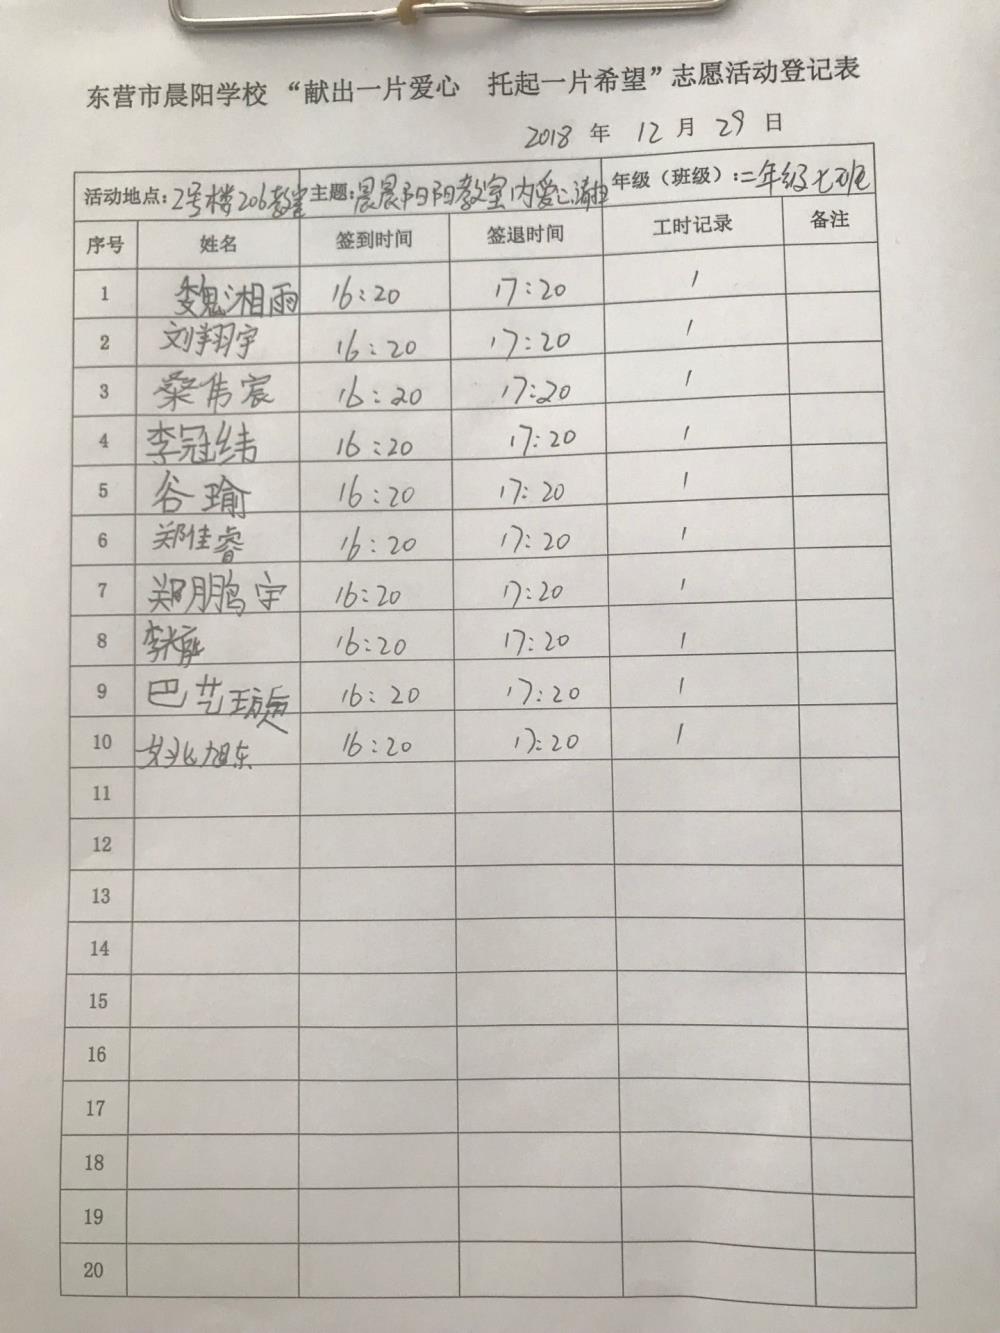 东营市晨阳学校 “献出一片爱心 托起一片希望”志愿活动登记表
2018 年 12 月 29 日
活动地点:2号楼206教室 主题:晨晨阳阳教室内爱心 年级（班级）:二年级七班
序号 姓名 签到时间 签退时间 工时记录 备注
1 魏湘雨 16:20 17:20 1
2 刘翔宇 16:20 17:20 1
3 桑伟宸 16:20 17:20 1
4 李冠纬 16:20 17:20 1
5 谷瑜 16:20 17:20 1
6 郑佳睿 16:20 17:20 1
7 郑鹏宇 16:20 17:20 1
8 李 16:20 17:20 1
9 巴艺璇 16:20 17:20 1
10 姚旭东 16:20 17:20 1
11
12
13
14
15
16
17
18
19
20